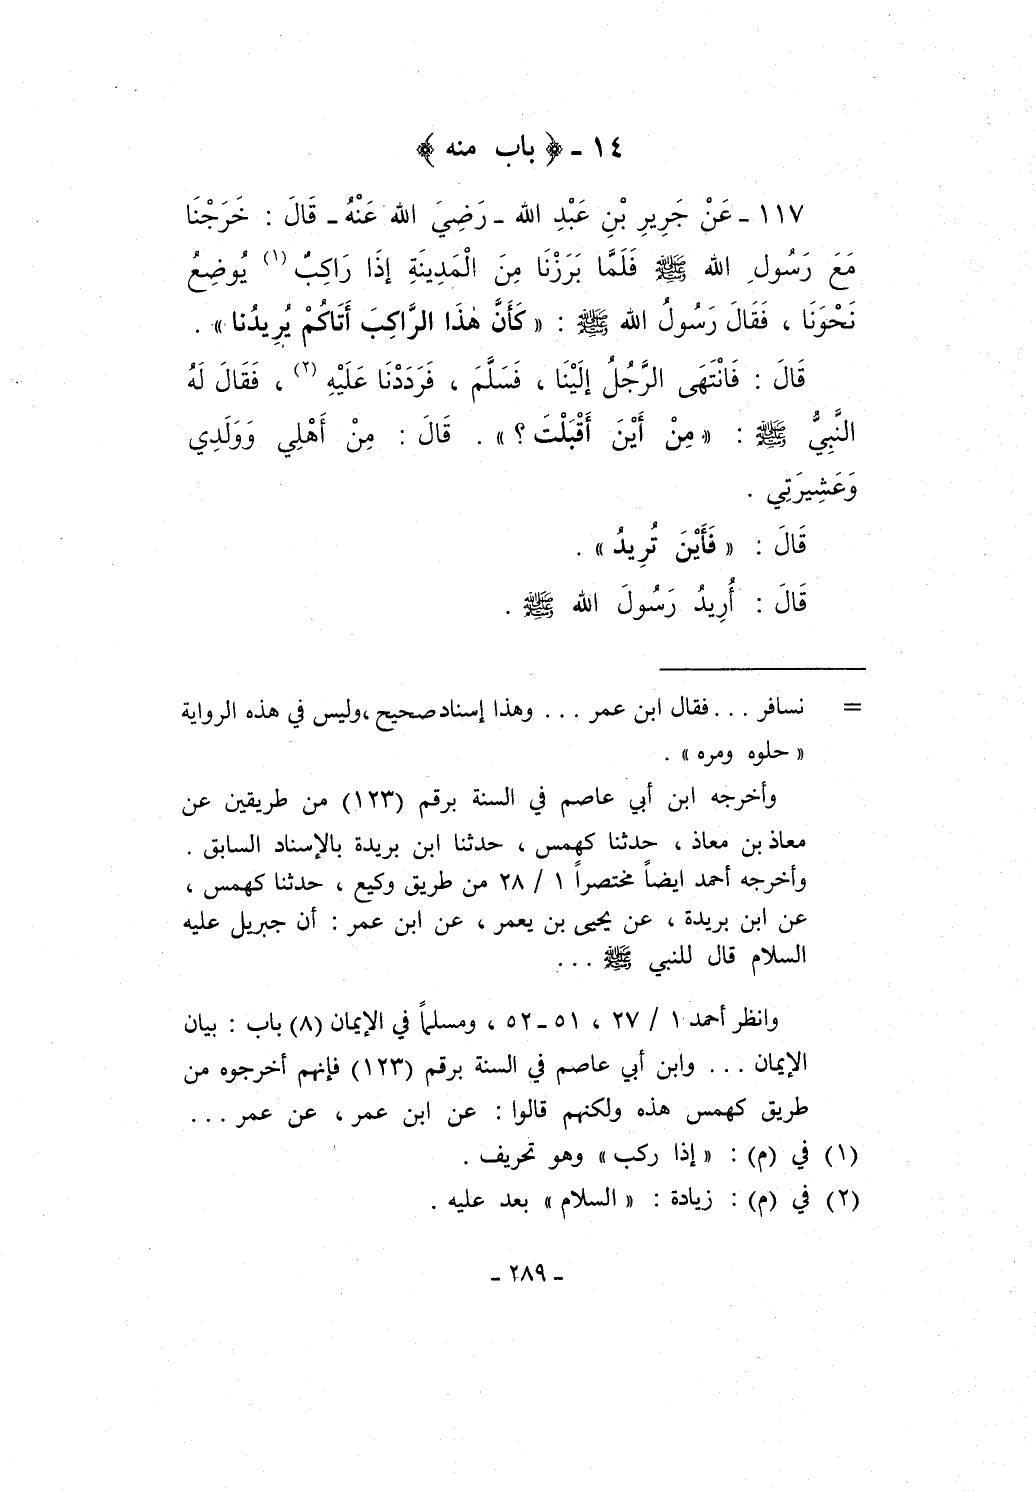 ١٤ ـ ﴿ باب منه ﴾
١١٧ ـ عَنْ جَرِيرِ بْنِ عَبْدِ الله ـ رَضِيَ الله عَنْهُ ـ قَالَ : خَرَجْنَا
مَعَ رَسُولِ الله ﷺ فَلَمَّا بَرَزْنَا مِنَ الْمَدِينَةِ إذَا رَاكِبٌ (١) يُوضِعُ
نَحْوَنَا ، فَقَالَ رَسُولُ الله ﷺ : « كَأَنَّ هٰذَا الرَّاكِبَ أَتَاكُمْ يُرِيدُنا » .
قَالَ : فَانْتَهَى الرَّجُلُ إلَيْنَا ، فَسَلَّمَ ، فَرَدَدْنَا عَلَيْهِ (٢) ، فَقَالَ لَهُ
النَّبِيُّ ﷺ : « مِنْ أَيْنَ أَقْبَلْتَ ؟ » . قَالَ : مِنْ أَهْلِي وَوَلَدِي
وَعَشِيرَتِي .
قَالَ : « فَأَيْنَ تُرِيدُ » .
قَالَ : أُرِيدُ رَسُولَ الله ﷺ .
= نسافر . . . فقال ابن عمر . . . وهذا إسناد صحيح ،وليس في هذه الرواية
« حلوه ومره » .
وأخرجه ابن أبي عاصم في السنة برقم (١٢٣) من طريقين عن
معاذ بن معاذ ، حدثنا كهمس ، حدثنا ابن بريدة بالإسناد السابق .
وأخرجه أحمد ايضاً مختصراً ١ / ٢٨ من طريق وكيع ، حدثنا كهمس ،
عن ابن بريدة ، عن يحيى بن يعمر ، عن ابن عمر : أن جبريل عليه
السلام قال للنبي ﷺ . . .
وانظر أحمد ١ / ٢٧ ، ٥١ ـ ٥٢ ، ومسلماً في الإيمان (٨) باب : بيان
الإيمان . . . وابن أبي عاصم في السنة برقم (١٢٣) فإنهم أخرجوه من
طريق كهمس هذه ولكنهم قالوا : عن ابن عمر ، عن عمر . . .
(١) في (م) : « إذا ركب » وهو تحريف .
(٢) في (م) : زيادة : « السلام » بعد عليه .
ـ ٢٨٩ ـ